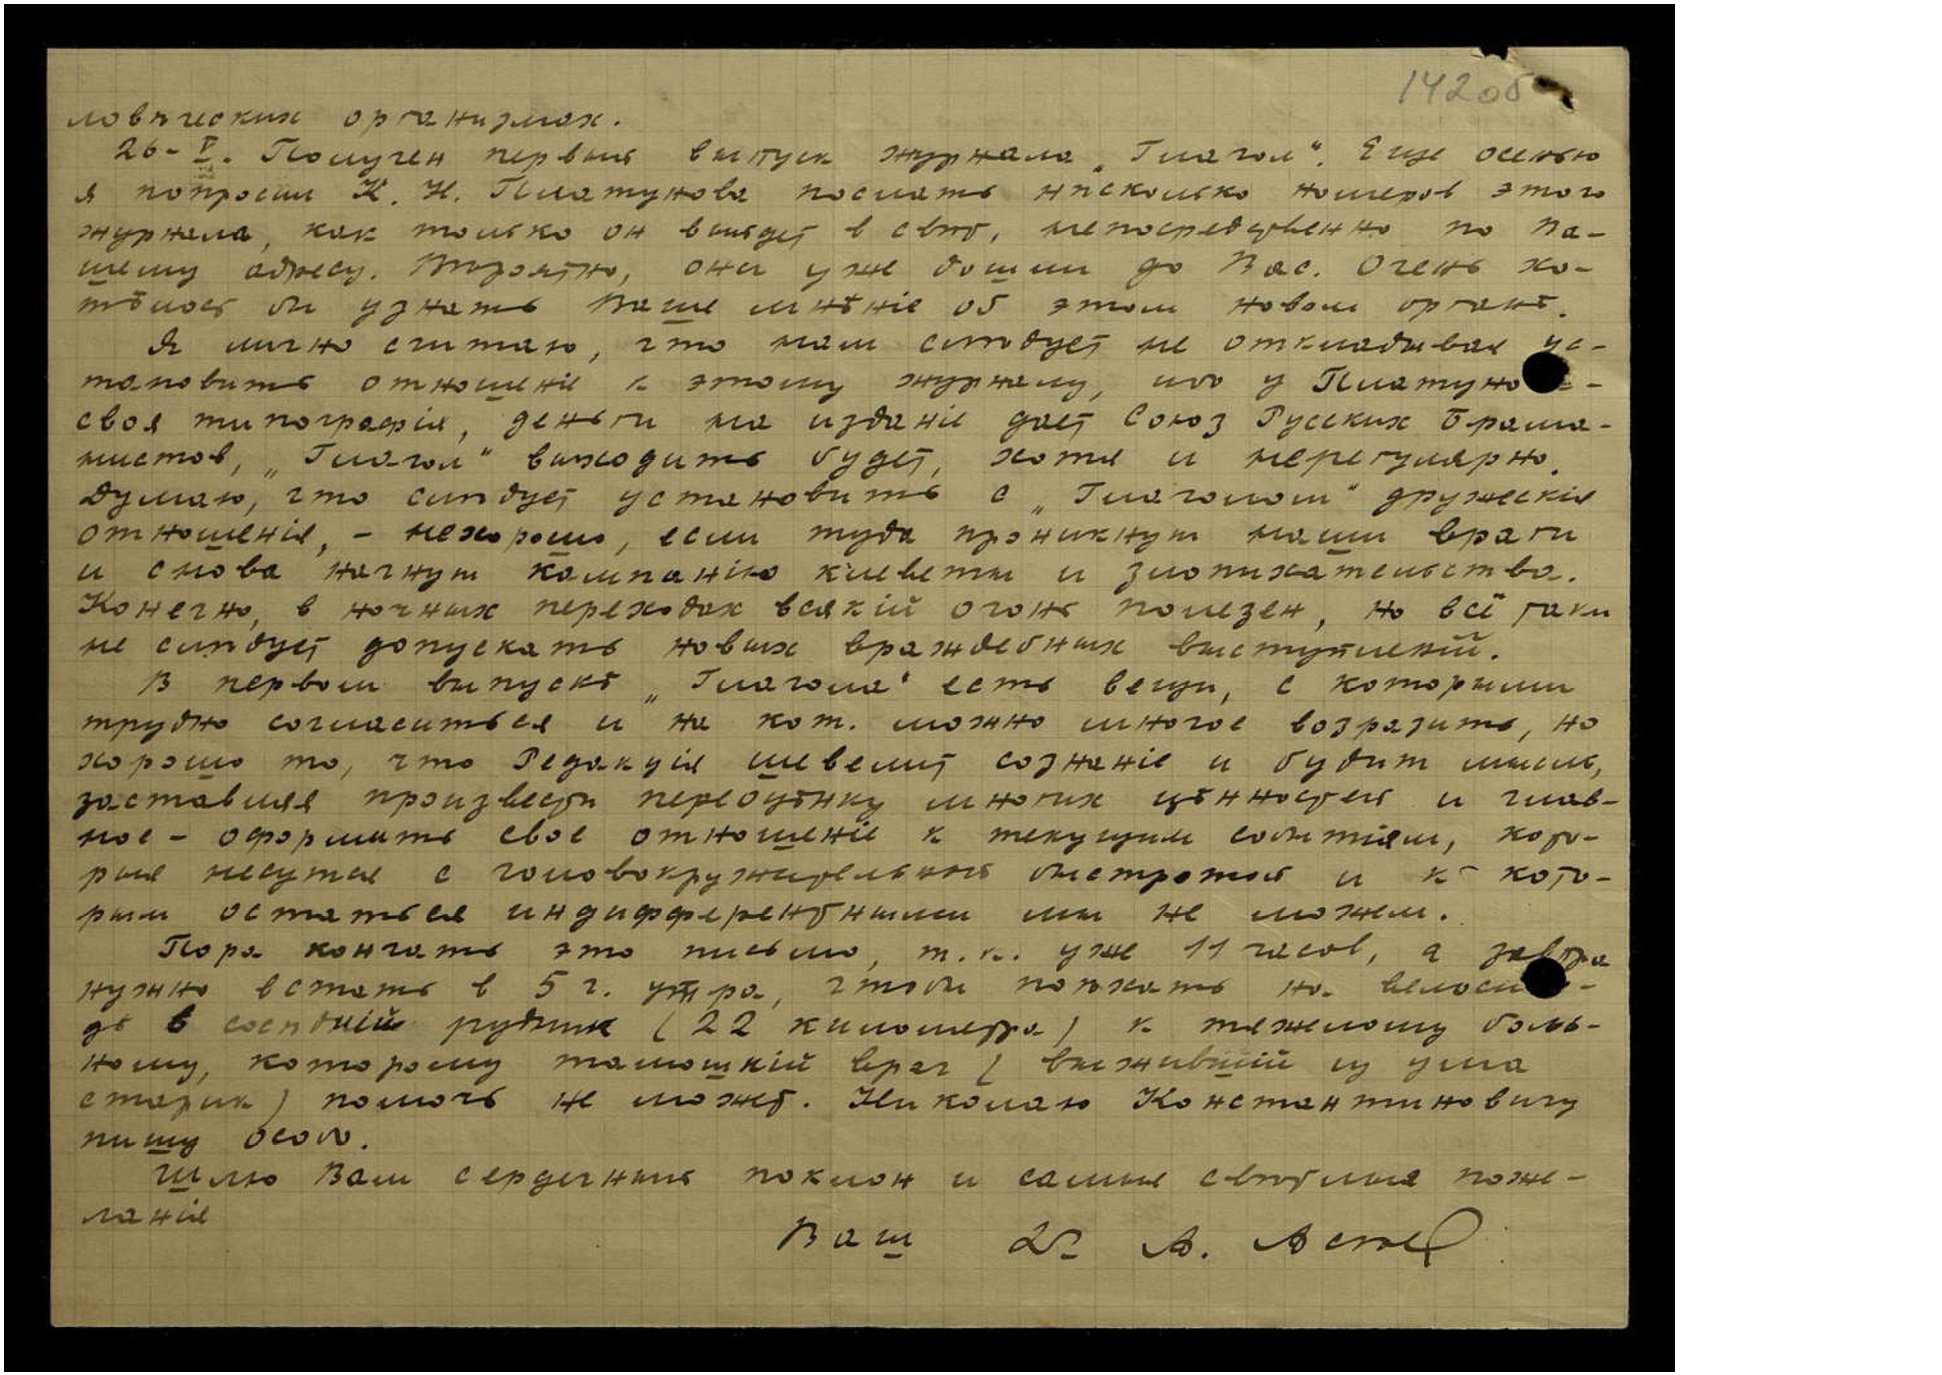 142об
ловѣческих организмах.
26-V. Получен первый выпуск журнала „Глагол“. Еще осенью
я попросил К. Н. Платунова послать нѣсколько номеров этого
журнала, как только он выйдет в свѣт, непосредственно по Ва-
шему адресу. Вѣроятно, они уже дошли до Вас. Очень хо-
тѣлось бы узнать Ваше мнѣніе об этом новом органѣ.
Я лично считаю, что нам слѣдует не откладывая ус-
тановить отношеніе к этому журналу, ибо у
своя типографія, деньги на изданіе дает Союз Русских Брама-
нистов, „Глагол“ выходить будет, хотя и нерегулярно.
Думаю, что слѣдует установить с „Глаголом“ дружескія
отношенія, - нехорошо, если туда проникнут наши враги
и снова начнут кампанію клеветы и злопыхательства.
Конечно, в ночных переходах всякій огонь полезен, но всё таки
не слѣдует допускать новых враждебных выступленій.
В первом выпускѣ „Глагола“ есть вещи, с которыми
трудно согласиться и на кот. можно многое возразить, но
хорошо то, что Редакція шевелит сознаніе и будит мысль,
заставляя произвести переоцѣнку многих цѣнностей и глав-
ное - оформить свое отношеніе к текущим событіям, кото-
рыя несутся с головокружительной быстротой и к кото-
рым остаться индифферентными мы не можем.
Пора кончать это письмо, т.к. уже 11 часов, а завтра
нужно встать в 5 ч. утра, чтобы поѣхать на
дѣ в сосѣдній рудник (22 километра) к тяжелому боль-
ному, которому тамошній врач (выжившій из ума
старик) помочь не может. Николаю Константиновичу
пишу особо.
Шлю Вам сердечный поклон и самыя свѣтлыя поже-
ланія
Ваш Др А. Асеев